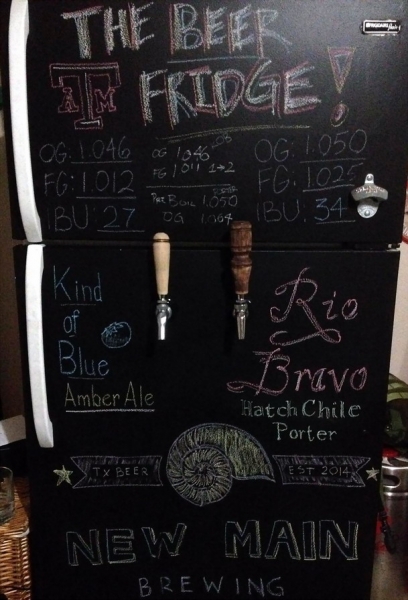 THE BEER
ATM FRIDGE!
FRIGIDAIRE
OG: 1.046
FG: 1.012
IBU: 27
OG 1.046
FG 1.011 1→2
PRE BOIL 1.050
OG 1.064
OG: 1.050
FG: 1.025
IBU: 34
Kind
of
Blue
Amber Ale
Rio
Bravo
Hatch Chile
Porter
TX BEER
EST 2014
NEW MAIN
BREWING